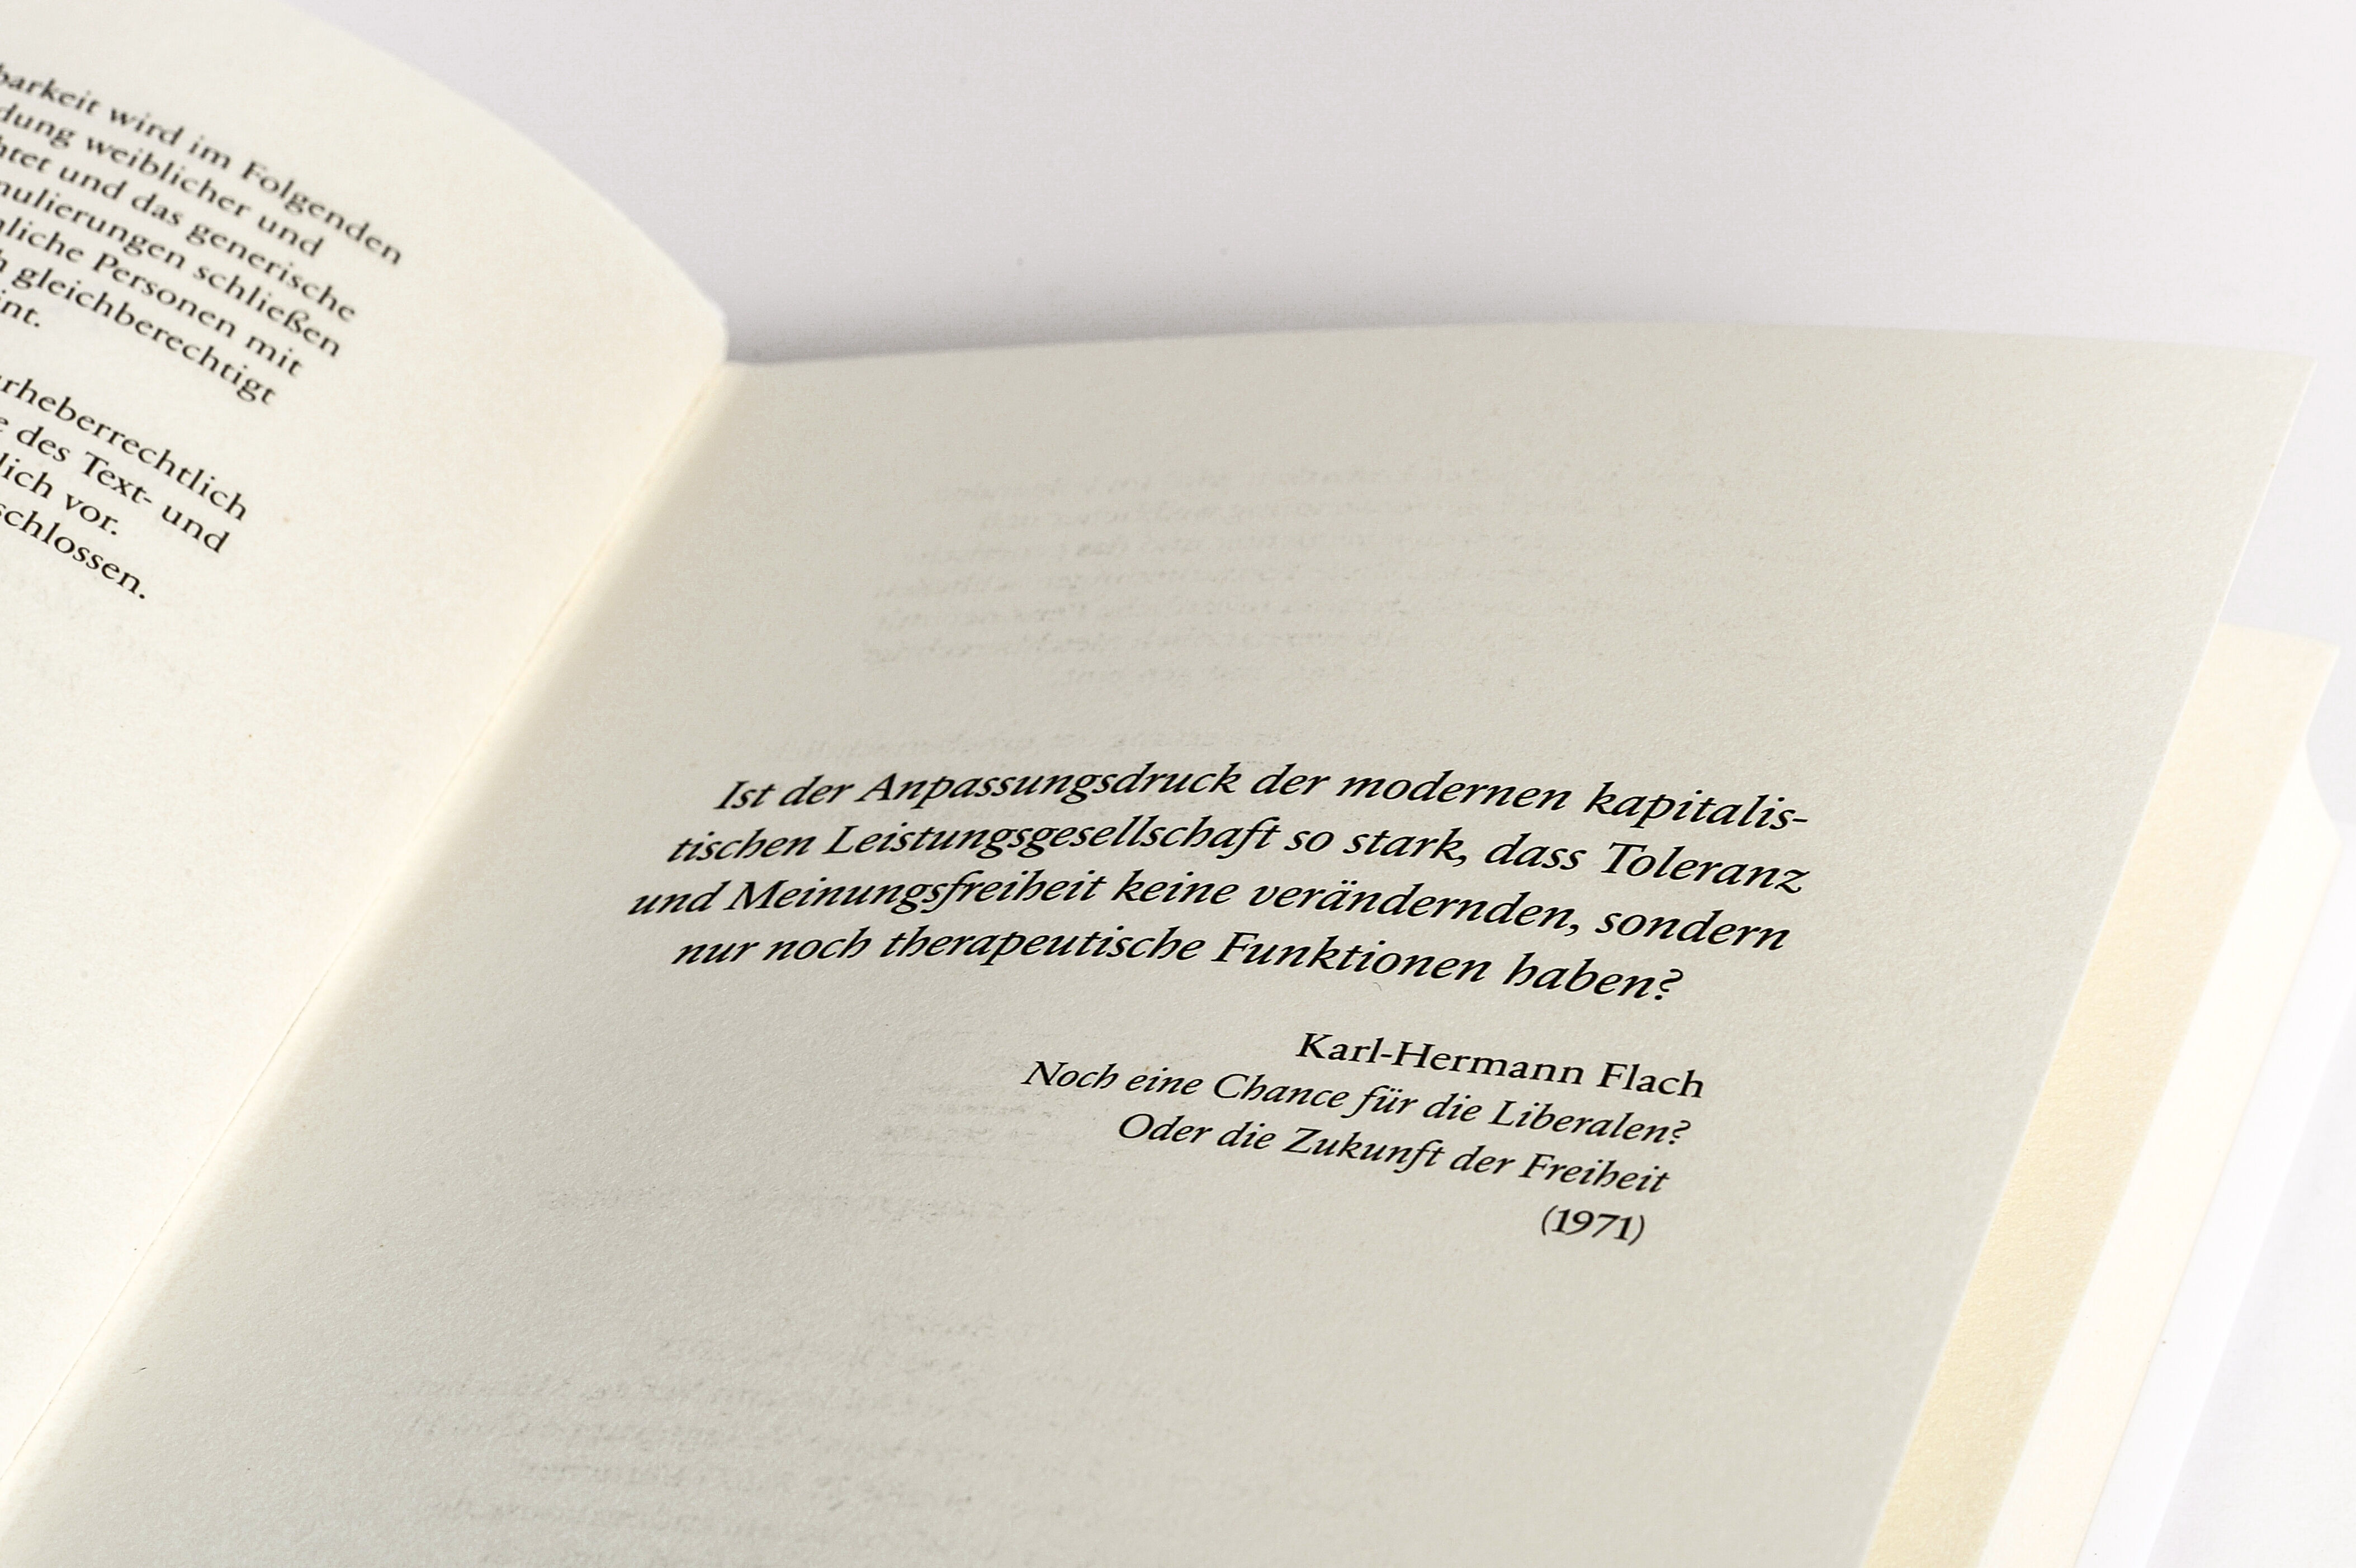 barkeit wird im Folgenden
dung weiblicher und
htet und das generische
mulierungen schließen
nliche Personen mit
h gleichberechtigt
int.
rheberrechtlich
e des Text- und
lich vor.
schlossen.
Ist der Anpassungsdruck der modernen kapitalis-
tischen Leistungsgesellschaft so stark, dass Toleranz
und Meinungsfreiheit keine verändernden, sondern
nur noch therapeutische Funktionen haben?
Karl-Hermann Flach
Noch eine Chance für die Liberalen?
Oder die Zukunft der Freiheit
(1971)